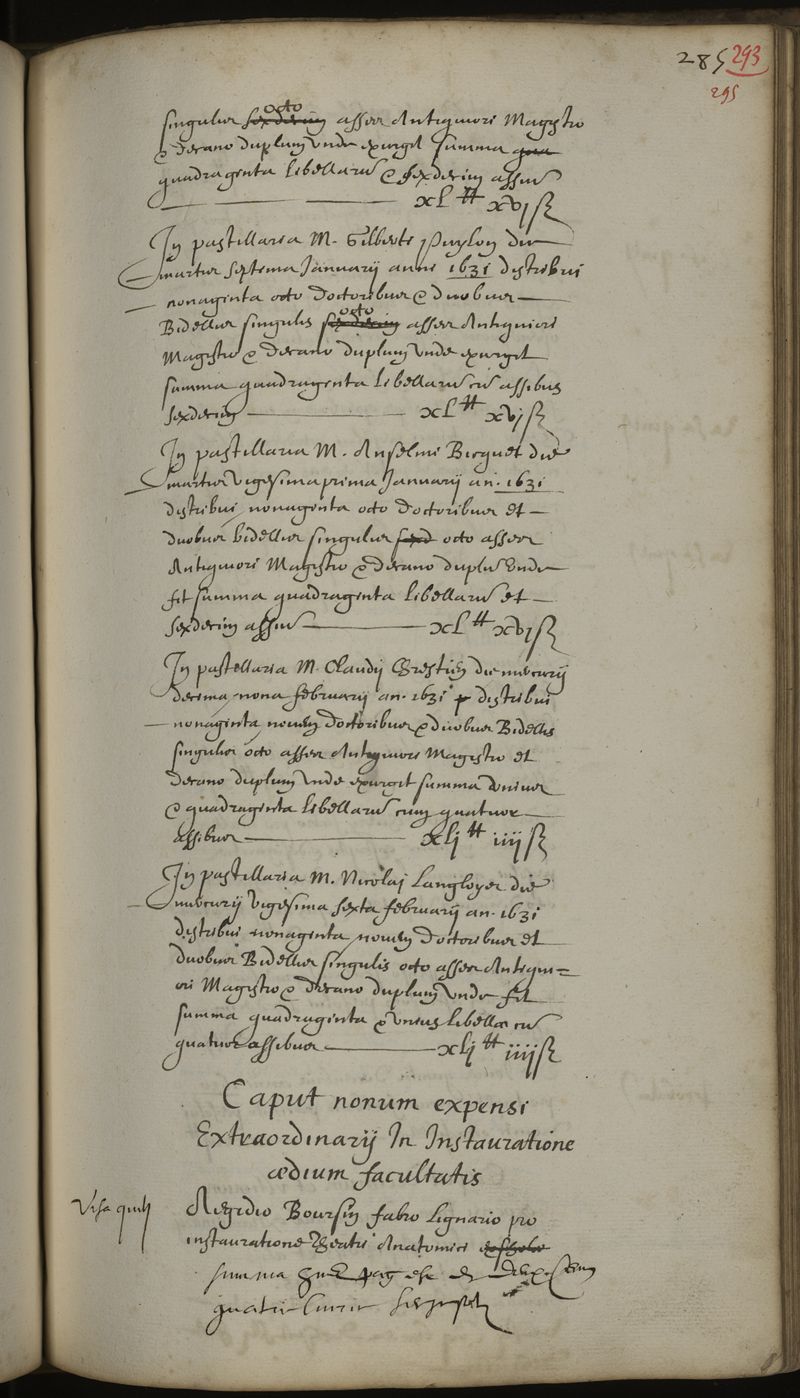 285 293
295
singulis sexdecim octo asses Antiquiori Magistro
& decano duplum unde exurgit summa qua
quadragenta libellarū & sexdecim assiū
xl ₶ xvj ß
In pastillaria M. Gilberti Puylon die
martis septima Januarij anni 1631 distribui
nonaginta octo doctoribus & duobus
Bidellis singulis sexdecim octo asses Antiquiori
Magistro & decano duplum unde exurgit
summa quadragenta libellarū cū assibus
sexdecim xl ₶ xvj ß
In pastillaria M. Anselmi Bicquet die
martis vigesima prima Januarij an. 1631
distribui nonaginta octo doctoribus et
duobus bidellis singulis sexd octo asses
Antiquiori Magistro & decano duplū unde
fit summa quadraginta libellarū et
sexdecim assiū xl ₶ xvj ß
In pastellaria M. Claudij die mercurij
decima nona februarij an. 1631 distribui
nonaginta novem doctoribus & duobus Bidellis
singulis octo asses Antiquiori Magistro et
decano duplum unde exurgit summa unius
& quadraginta libellarū cum quatuor
assibus xlj ₶ iiij ß
In pastillaria M. Nicolaj Langloys die
mercurij vigesima sexta februarij an. 1631
distribui nonaginta novem doctoribus et
duobus Bidellis singulis octo asses Antiqui=
ori Magistro & decano duplum unde fit
summa quadraginta & unius libellæ cū
quatuor assibus xlj ₶ iiij ß
Caput nonum expensi
Extraordinarij In Instauratione
ædium facultatis
Visa quit
Aegidio Boursin fabro lignario pro
instauratione theatri Anatomici
summa